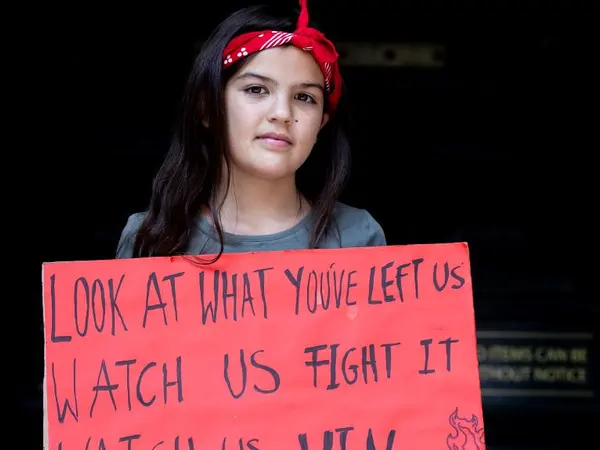 LOOK AT WHAT YOU'VE LEFT US
WATCH US FIGHT IT
WATCH US WIN
ITEMS CAN BE
WITHOUT NOTICE